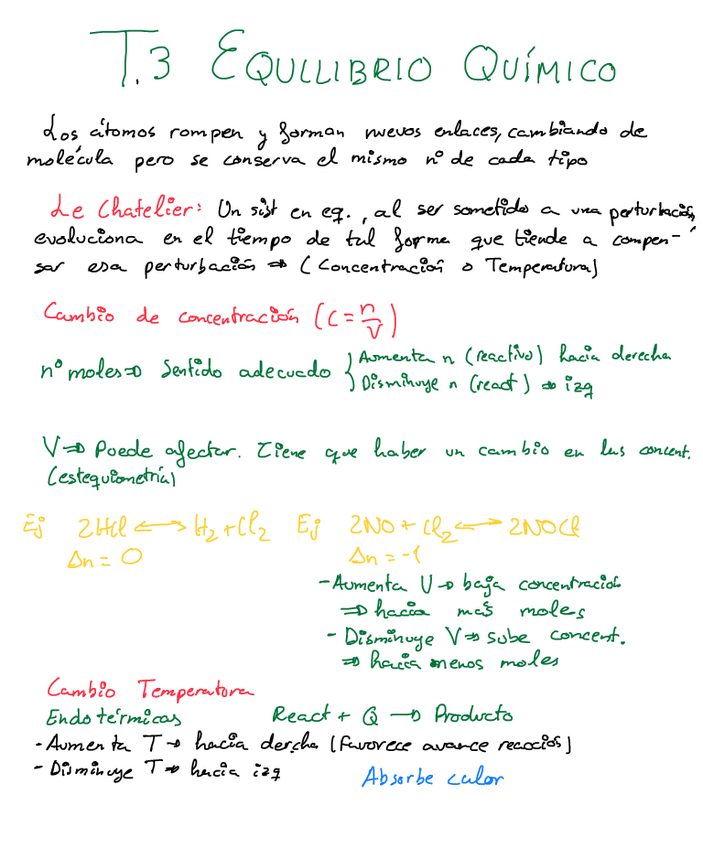 T.3 EQUILIBRIO QUÍMICO
Los átomos rompen y forman nuevos enlaces, cambiando de
molécula pero se conserva el mismo nº de cada tipo
Le Chatelier: Un sist en eq., al ser sometido a una perturbación,
evoluciona en el tiempo de tal forma que tiende a compen-
sar esa perturbación ⇒ (Concentración o Temperatura)
Cambio de concentración (C = n/V)
nº moles ⇒ Sentido adecuado } Aumenta n (reactivo) hacia derecha
Disminuye n (react) ⇒ izq
V ⇒ Puede afectar. Tiene que haber un cambio en las concent.
(estequiometría)
Ej 2HCl ⟷ H₂ + Cl₂ Ej 2NO + Cl₂ ⟷ 2NOCl
Δn = 0 Δn = -1
- Aumenta V → baja concentración
⇒ hacia más moles
- Disminuye V ⇒ sube concent.
⇒ hacia menos moles
Cambio Temperatura
Endotérmicas React + Q → Producto
- Aumenta T → hacia dercha (favorece avance reacción)
- Disminuye T ⇒ hacia izq
Absorbe calor